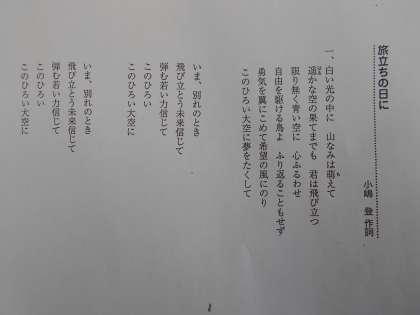 旅立ちの日に
小嶋 登 作詞
一、白い光の中に 山なみは萌えて
遥かな空の果てまでも 君は飛び立つ
限り無く青い空に 心ふるわせ
自由を駆ける鳥よ ふり返ることもせず
勇気を翼にこめて希望の風にのり
このひろい大空に夢をたくして
いま、別れのとき
飛び立とう未来信じて
弾む若い力信じて
このひろい
このひろい大空に
いま、別れのとき
飛び立とう未来信じて
弾む若い力信じて
このひろい
このひろい大空に